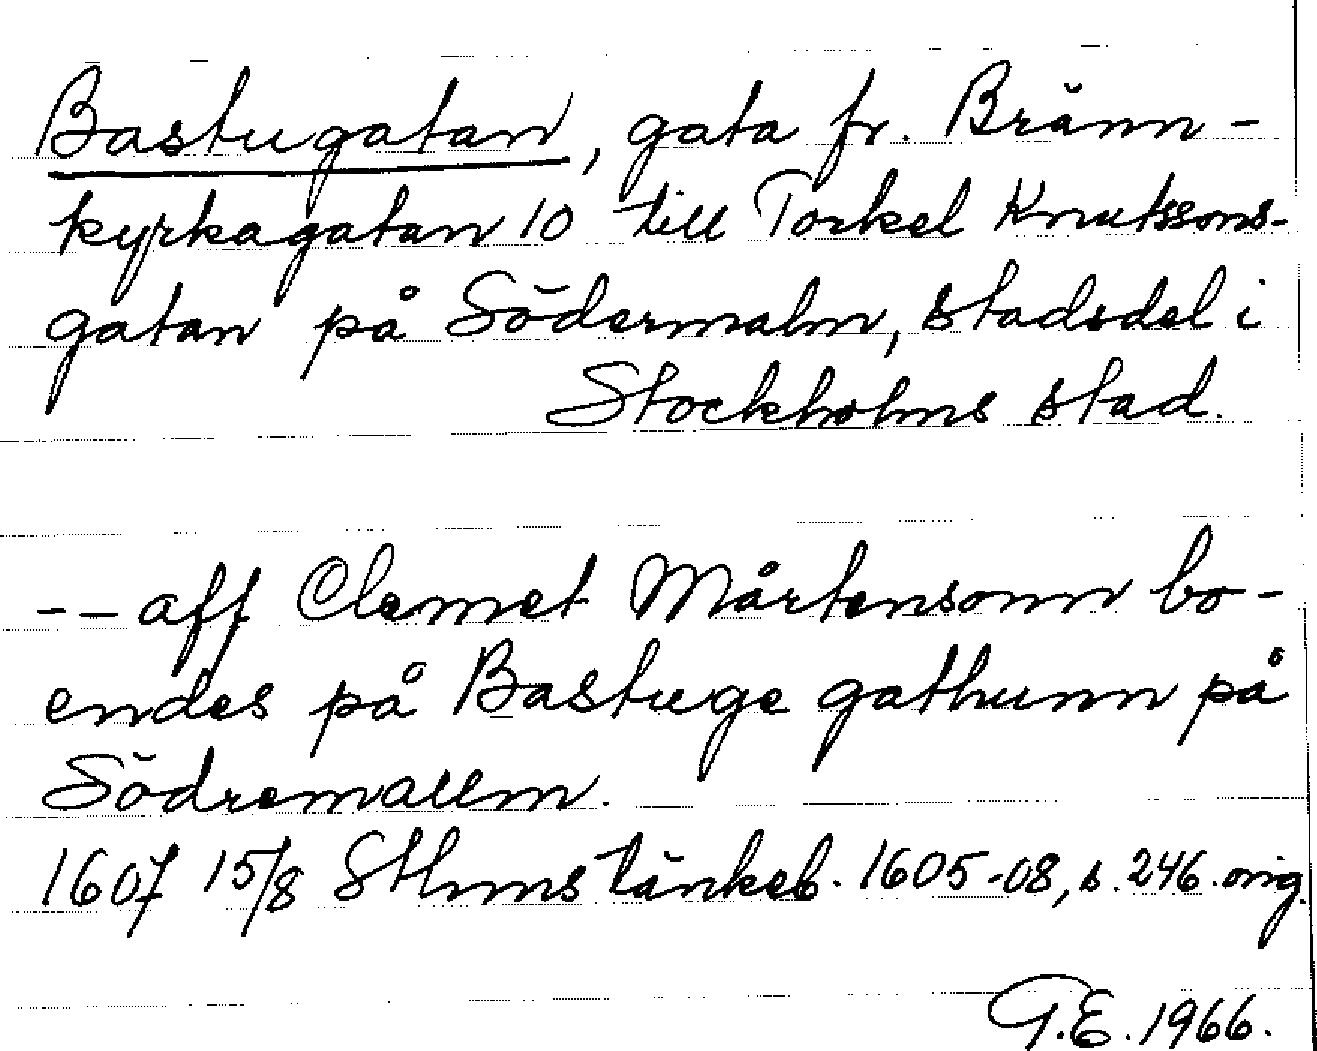 Bastugatan, gata fr. Bränn-
kyrkagatan 10 till Torkel Knutssons-
gatan på Södermalm, stadsdel i
Stockholms stad.
-- aff Clemet Mårtensonn bo-
endes på Bastuge gathunn på
Södremallm.
1607 15/8 Sthms tänkeb. 1605-08, s. 246. orig.
G.E. 1966.